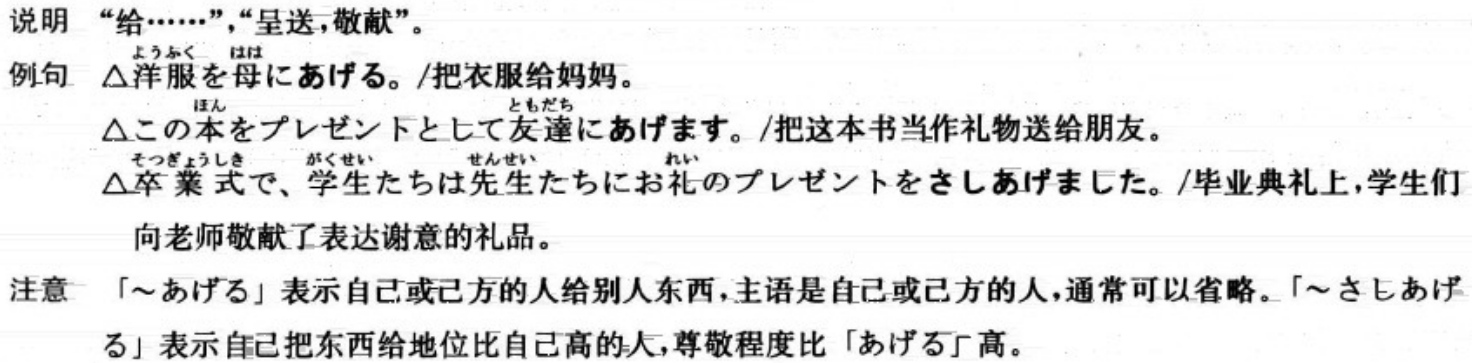 说明 “给……”,“呈送,敬献”。
ようふく はは
例句 △洋服を母にあげる。/把衣服给妈妈。
ほん ともだち
△この本をプレゼントとして友達にあげます。/把这本书当作礼物送给朋友。
そつぎょうしき がくせい せんせい れい
△卒業式で、学生たちは先生たちにお礼のプレゼントをさしあげました。/毕业典礼上,学生们
向老师敬献了表达谢意的礼品。
注意 「～あげる」表示自己或己方的人给别人东西,主语是自己或己方的人,通常可以省略。「～さしあげ
る」表示自己把东西给地位比自己高的人,尊敬程度比「あげる」高。